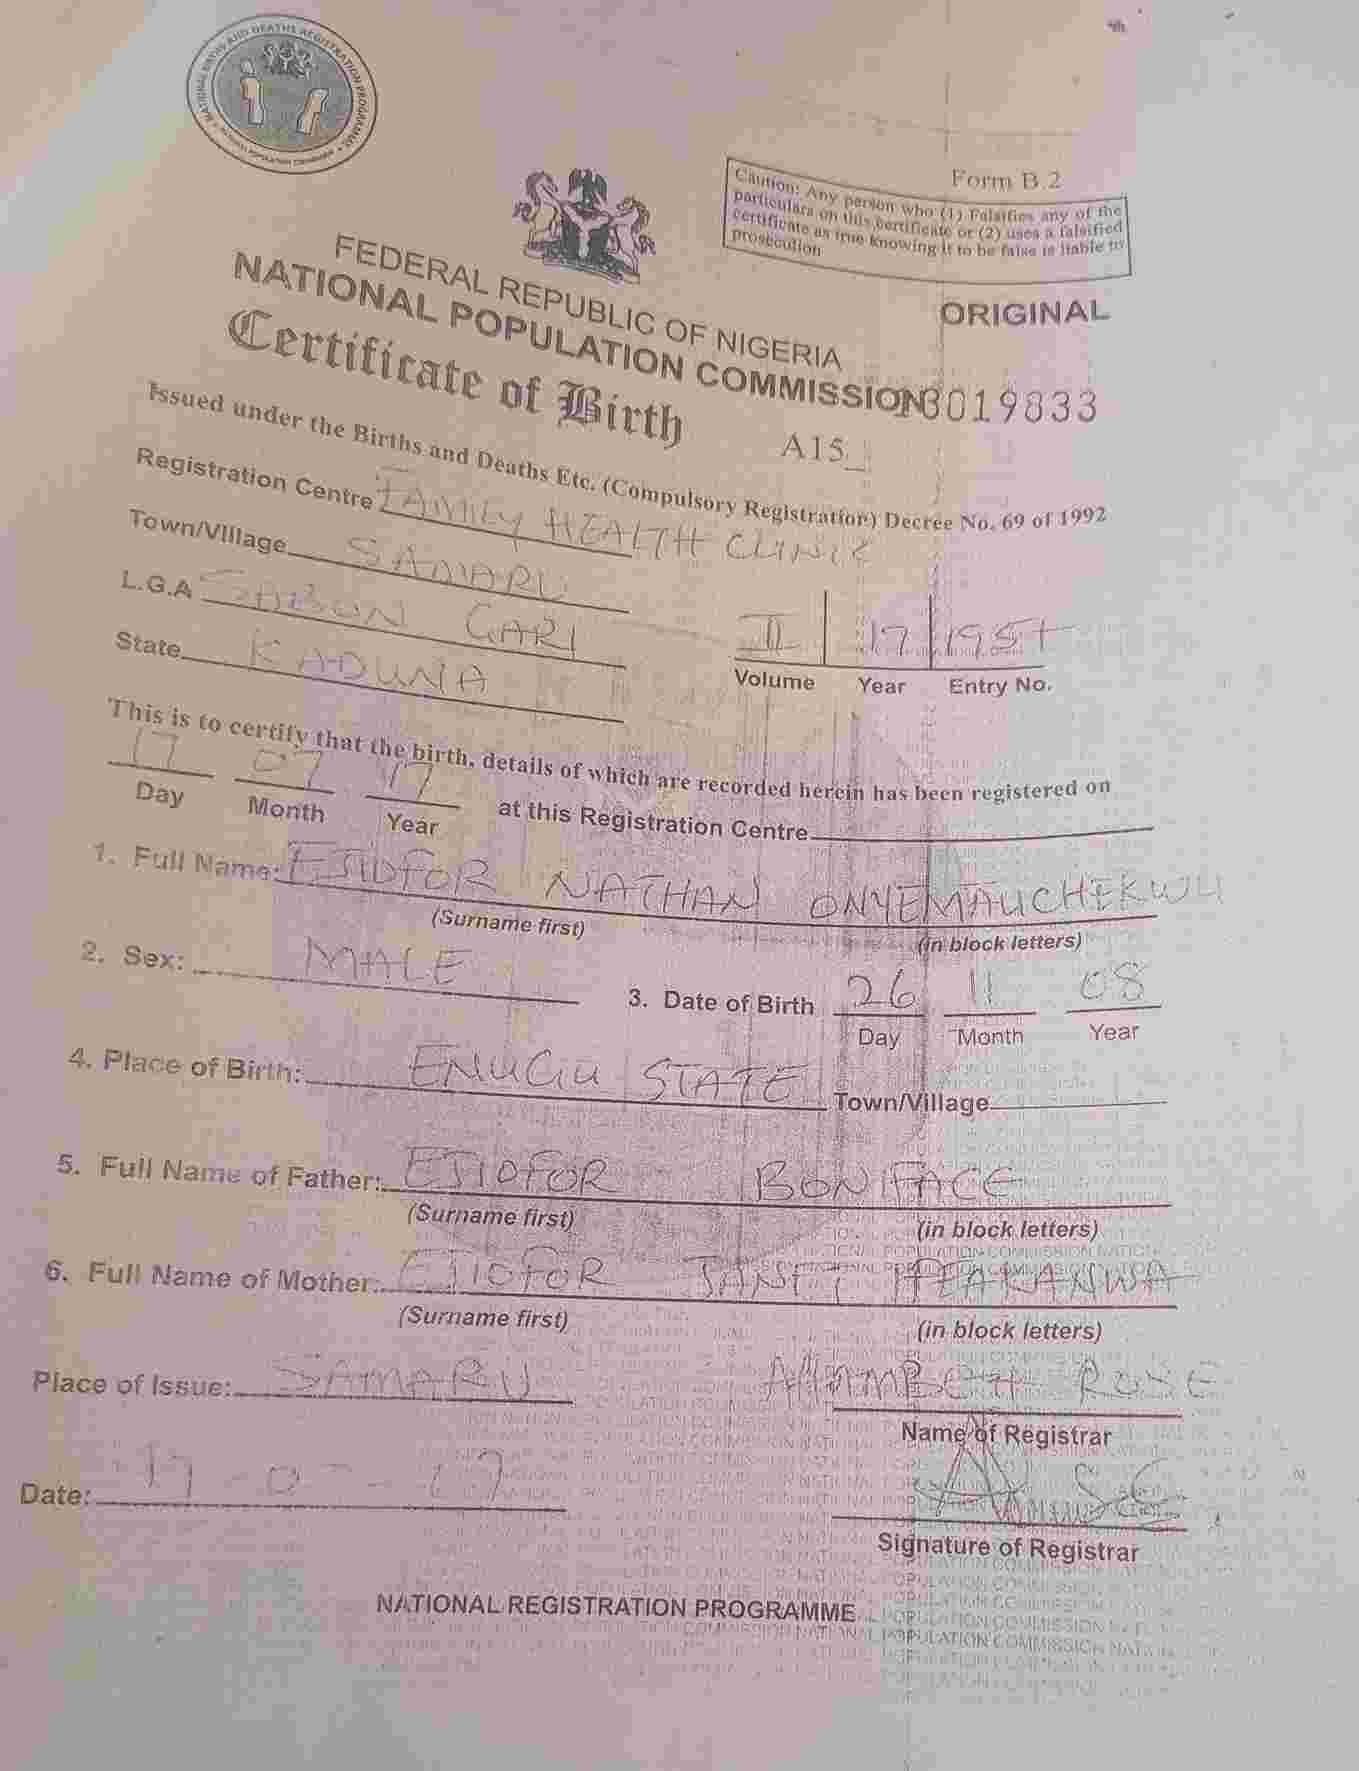 NATIONAL BIRTHS AND DEATHS REGISTRATION PROGRAMME
NATIONAL POPULATION COMMISSION
Form B 2
Caution: Any person who (1) Falsifies any of the
particulars on this certificate or (2) uses a falsified
certificate as true knowing it to be false is liable to
prosecution
FEDERAL REPUBLIC OF NIGERIA
ORIGINAL
NATIONAL POPULATION COMMISSION
3019833
Certificate of Birth
A15
Issued under the Births and Deaths Etc. (Compulsory Registration) Decree No. 69 of 1992
Registration Centre FAMILY HEALTH CLINIC
Town/Village SAMARU
L.G.A SABON GARI
State KADUNA
II 17
Volume Year Entry No.
This is to certify that the birth, details of which are recorded herein has been registered on
17 07 17
Day Month Year at this Registration Centre
1. Full Name: EJIOFOR NATHAN ONYEMAUCHEKWU
(Surname first) (in block letters)
2. Sex: MALE
3. Date of Birth 26 11 08
Day Month Year
4. Place of Birth: ENUGU STATE Town/Village
5. Full Name of Father: EJIOFOR BONIFACE
(Surname first) (in block letters)
6. Full Name of Mother: EJIOFOR JANE
(Surname first) (in block letters)
Place of Issue: SAMARU ROSE
Name of Registrar
Date: 17 - 07 - 17
Signature of Registrar
NATIONAL REGISTRATION PROGRAMME